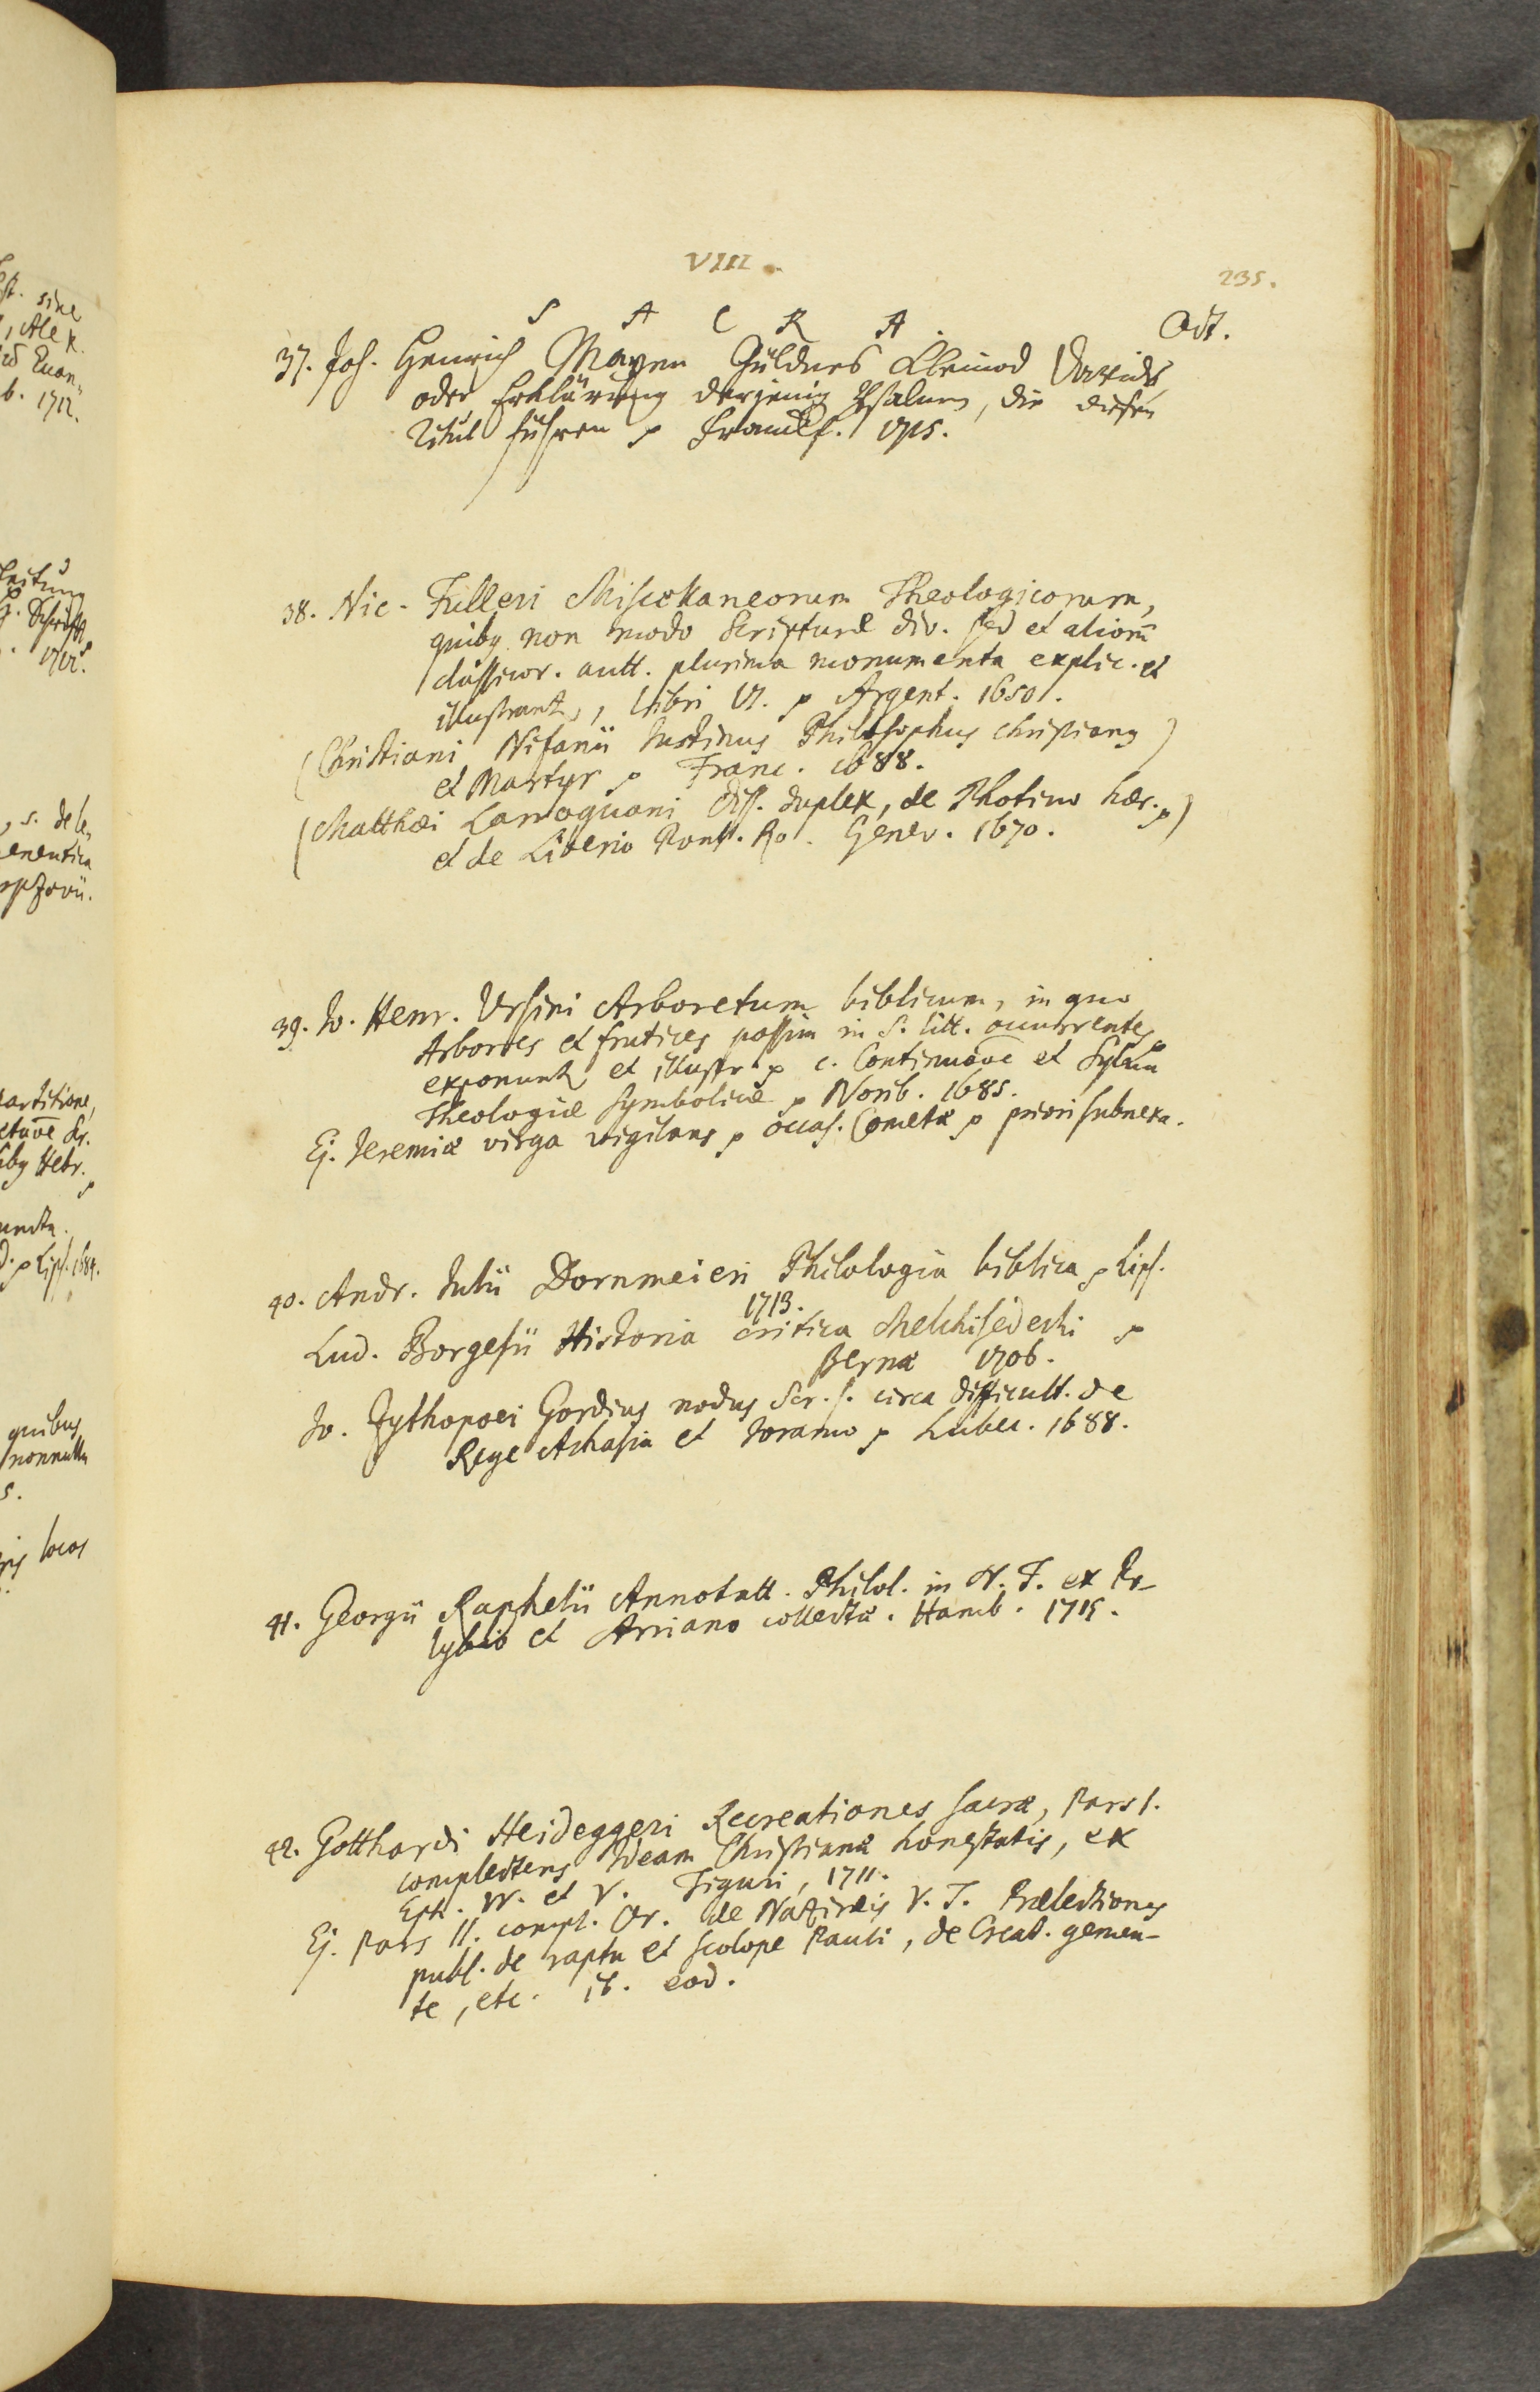 VIII.
235.
S A C R A.
Oct.
37. Joh. Henrich Mayen Güldnes Kleinod Davids,
oder Erklärung derjenig Psalmen, die diesen
Titul führen p Franckf. 1715.
38. Nic. Fulleri Miscellaneorum Theologicorum,
quibq non modo Scripturæ div. sed et aliorū
classicor. autt. plurima monumenta explic. et
illustrant, Libri VI. p Argent. 1650.
(Christiani Nifanii Justinus Philosophus Christianq
et Martyr p Franc. 1688.)
(Matthæi Larroquani diss. duplex, de Photino hær. p)
et de Liberio Pont. Ro. Genev. 1670.
39. Jo. Henr. Ursini Arboretum biblicum, in quo
Arbores et frutices passim in S. litt. occurrentes
exponunt et illustr. p c. Continuaōe et Sylva
Theologiæ symbolicæ p Norib. 1685.
Ej. Jeremiæ virga vigilans p occas. Cometæ p priori subnexa.
40. Andr. Julii Dornmeieri Philologia biblica p Lips.
1713.
Lud. Borgesii Historia critica Melchisedechi p
Bernæ 1706.
Jo. Zythopoei Gordius nodus Scr. s. circa difficult. de
Rege Achasia et Joramo p Lubec. 1688.
41. Georgii Raphelii Annotatt. Philol. in N. T. ex Po-
lybio et Arriano collectæ. Hamb. 1715.
42. Gotthardi Heideggeri Recreationes sacræ, Pars I.
complectens Ideam Christianæ honestatis, ex
Eph. IV. et V. Tiguri, 1711.
Ej. Pars II. compl. Or. de Naziræis V. T. Prælectiones
publ. de raptu et scolope Pauli, de Creat. gemen-
te, etc. ib. eod.